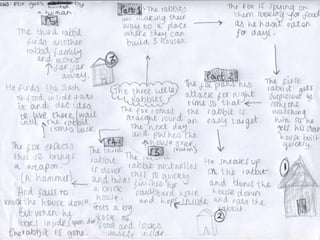 END: Fox goes
by
a human.
Part 1
The rabbits
are making their
way to a place
where they can
build 3 houses.
The Fox is spying on
them looking for food
as he hasn't eaten
for days.
The first
rabbit gets
suspicious of
someone
watching
him so he
gets his
house built
quickly.
Part 2
The fox plans his
attack for night
time so that
the rabbit is
an easy target.
He sneaks up
on the rabbit
and blows the
house down
and eats the
rabbit.
The three little
rabbits
The fox comes
straight round
the next day
and pushes the
house over
The
rabbit witnesses
this so quickly
finishes his
cardboard house
and hops inside.
P4
The third
rabbit
is clever
and had
a brick
house.
gets a big
stock of
food and locks
himself inside.
The fox expects
this so brings
a weapon
(A hammer)
And fails to
knock the house down.
But when he
looks inside
the rabbit is gone.
He finds the stash
of food inside eats
it and decides
to live there/wait
until the rabbit
comes back.
The third rabbit
finds another
rabbit family
and moves
far far
away.
1
2
3